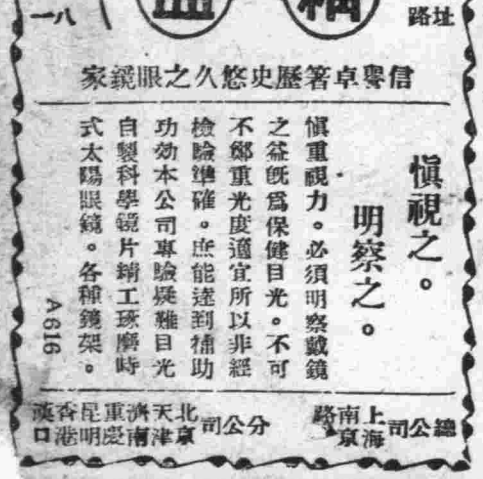 址路
八一
信譽卓箸歷史悠久之眼鏡家
慎視之。
明察之。
慎重視力。必須明察戴鏡
之益旣爲保健目光。不可
不鄭重光度適宜所以非經
檢驗準確。庶能達到補助
功効本公司專驗疑難目光
自製科學鏡片精工琢磨時
式太陽眼鏡。各種鏡架。
A616
總公司 上海南京路
分公司 北京 天津 濟南 重慶 昆明 香港 漢口